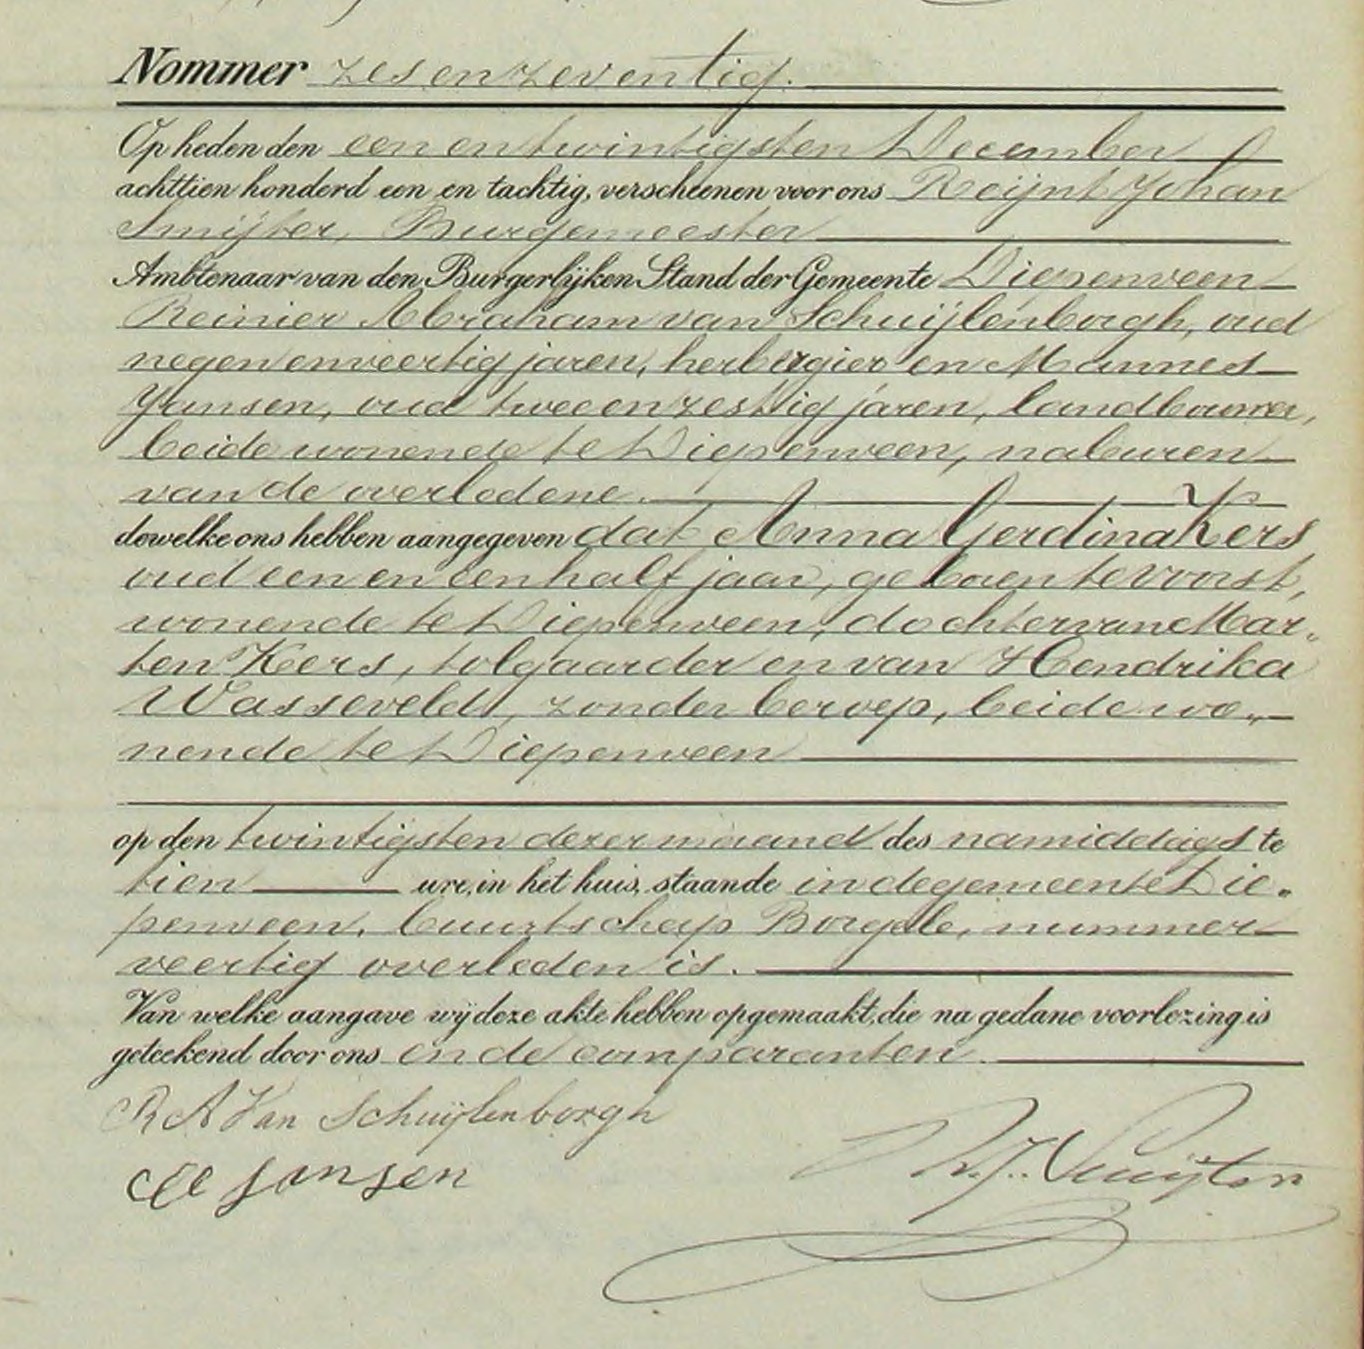 Nommer zes en zeventig.
Op heden den een en twintigsten December
achttien honderd een en tachtig, verscheenen voor ons Reijnt Johan
Smijter, Burgemeester
Ambtenaar van den Burgerlijken Stand der Gemeente Diepenveen
Reinier Abraham van Schuijlenborgh, oud
negen en veertig jaren, herbergier en Mannes
Jansen, oud twee en zestig jaren, landbouwer,
beide wonende te Diepenveen, naburen
van de overledene.
dewelke ons hebben aangegeven dat Anna Gerdina Kers
oud een en een half jaar, geboren te Voorst,
wonende te Diepenveen, dochter van Mar„
ten Kers, tolgaarder en van Hendrika
Wasseveld, zonder beroep, beide wo„
nende te Diepenveen
op den twintigsten dezer maand des namiddags te
tien ure, in het huis, staande in de gemeente Die„
penveen, buurtschap Borgele, nummer
veertig overleden is.
Van welke aangave wij deze akte hebben opgemaakt, die na gedane voorlezing is
geteekend door ons en de comparanten.
R A Van Schuijlenborgh
Jansen
R. J. Smijter